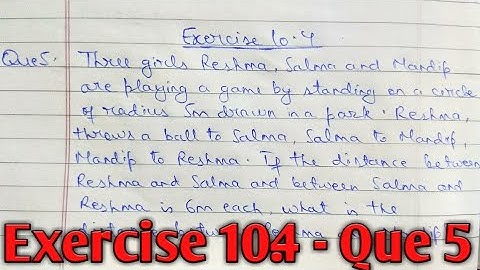 Exercise 10.4.
Que5. Three girls Reshma, Salma and Mandip
are playing a game by standing on a circle
of radius 5m drawn in a park. Reshma,
throws a ball to Salma, Salma to Mandip,
Mandip to Reshma. If the distance between
Reshma and Salma and between Salma and
Reshma is 6m each, what is the
Exercise 10.4 - Que 5